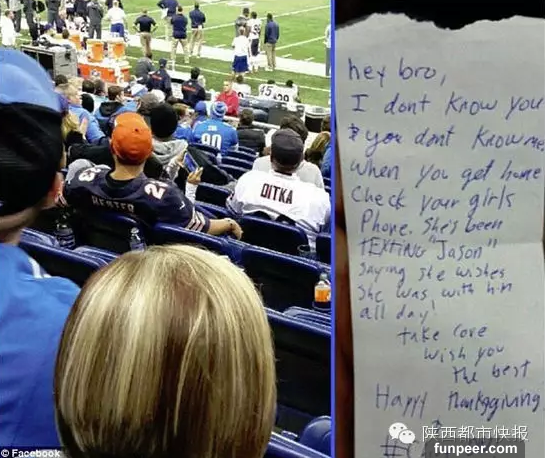 45
98
90
HESTER
23
DITKA
hey bro,
I dont know you
& you dont know me
when you get home
check your girls
Phone. She's been
TEXTING "Jason"
saying she wishes
she was with him
all day!
take care
wish you
the best
Happy thanksgiving
#
陕西都市快报
funpeer.com
© Facebook